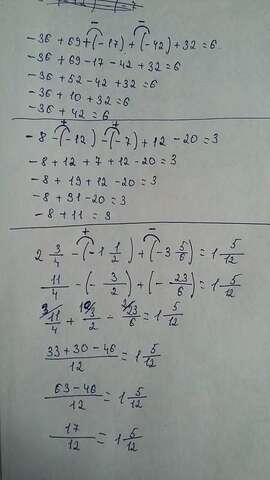 -36 + 69 + (-17) + (-42) + 32 = 6
-36 + 69 - 17 - 42 + 32 = 6
-36 + 52 - 42 + 32 = 6
-36 + 10 + 32 = 6
-36 + 42 = 6
-8 - (-12) - (-7) + 12 - 20 = 3
-8 + 12 + 7 + 12 - 20 = 3
-8 + 19 + 12 - 20 = 3
-8 + 31 - 20 = 3
-8 + 11 = 3
2 3/4 - (-1 1/2) + (-3 5/6) = 1 5/12
11/4 - (-3/2) + (-23/6) = 1 5/12
11/4 + 3/2 - 23/6 = 1 5/12
33 + 30 - 46/12 = 1 5/12
63 - 46/12 = 1 5/12
17/12 = 1 5/12